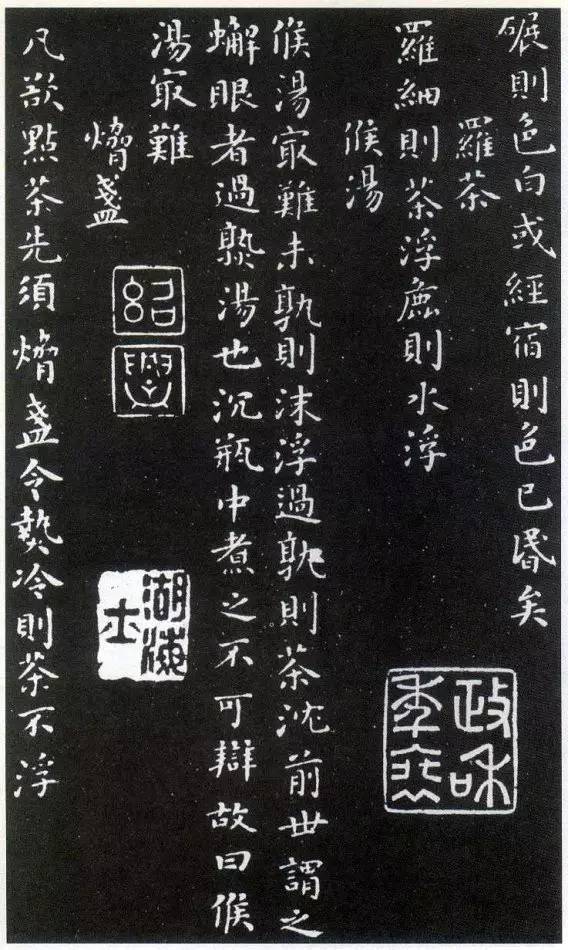 碾則色白或經宿則色已昬矣
羅茶
羅細則茶浮麁則水浮
候湯
候湯冣難未孰則沫浮過孰則茶沈前丗謂之
蠏眼者過熟湯也沉瓶中煮之不可辯故曰候
湯冣難
熁盞
凡欲點茶先須熁盞令熱冷則茶不浮
政和
紹
興
湖海
士